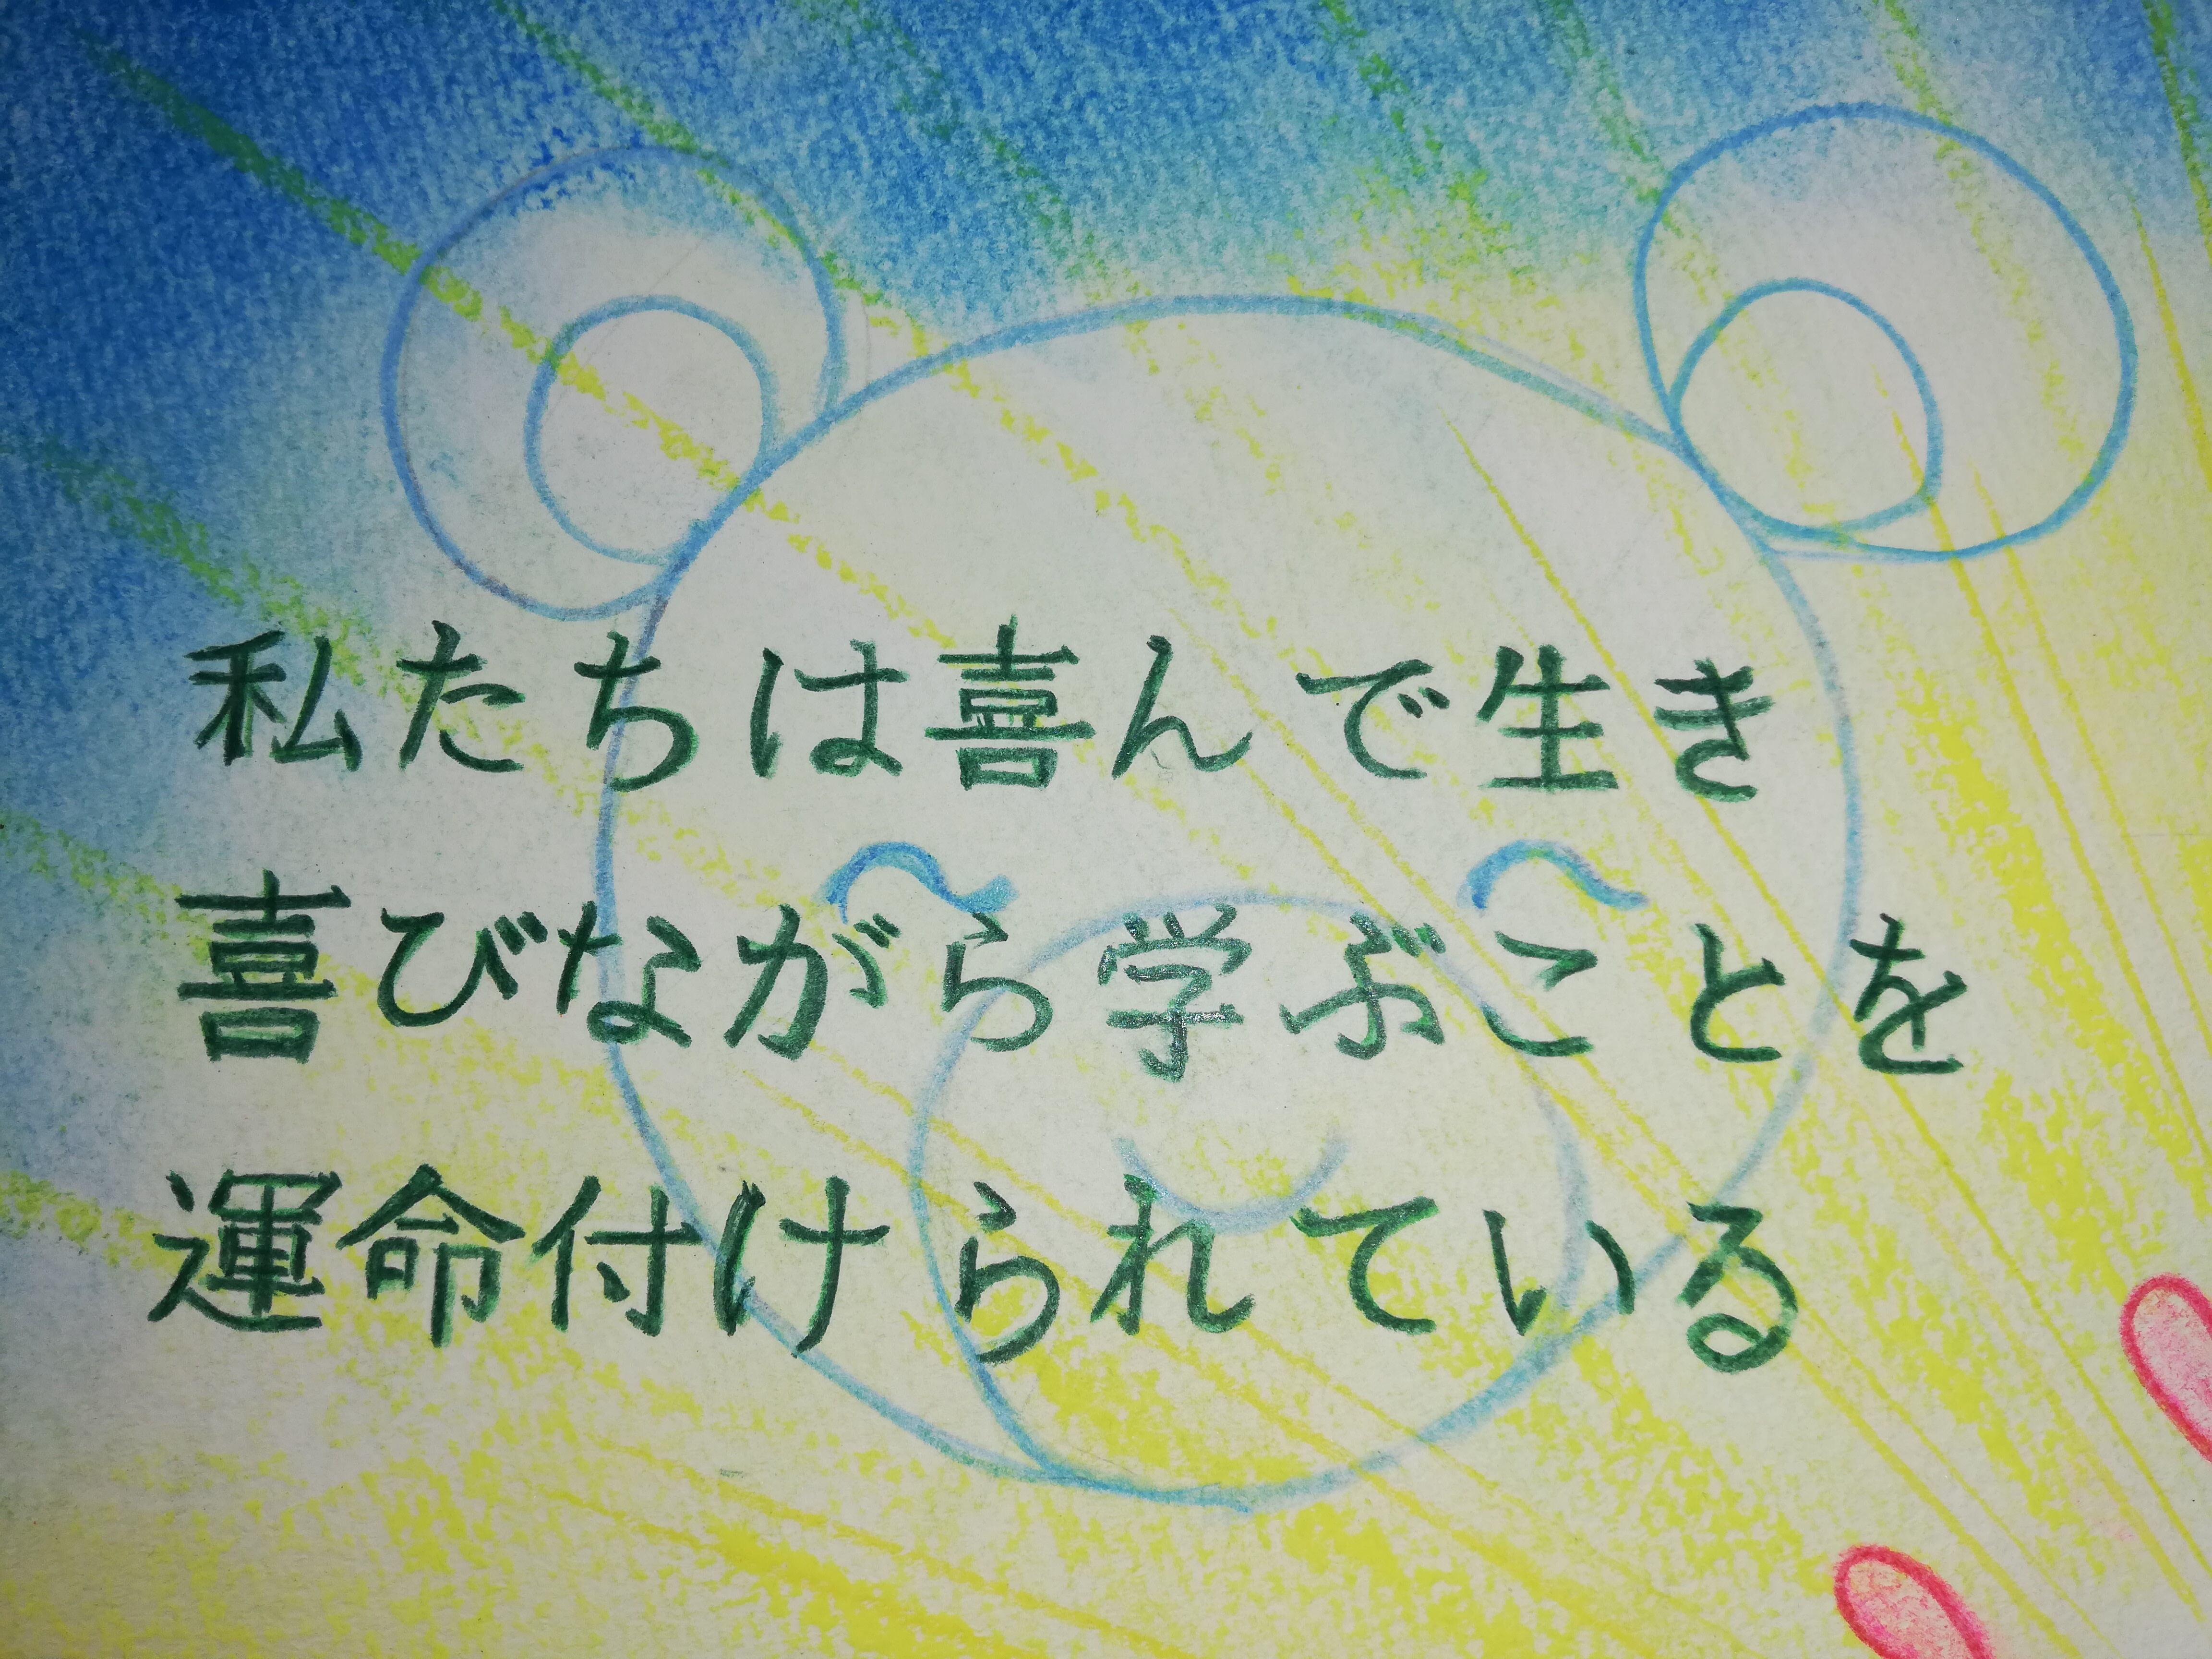 私たちは喜んで生き
喜びながら学ぶことを
運命付けられている